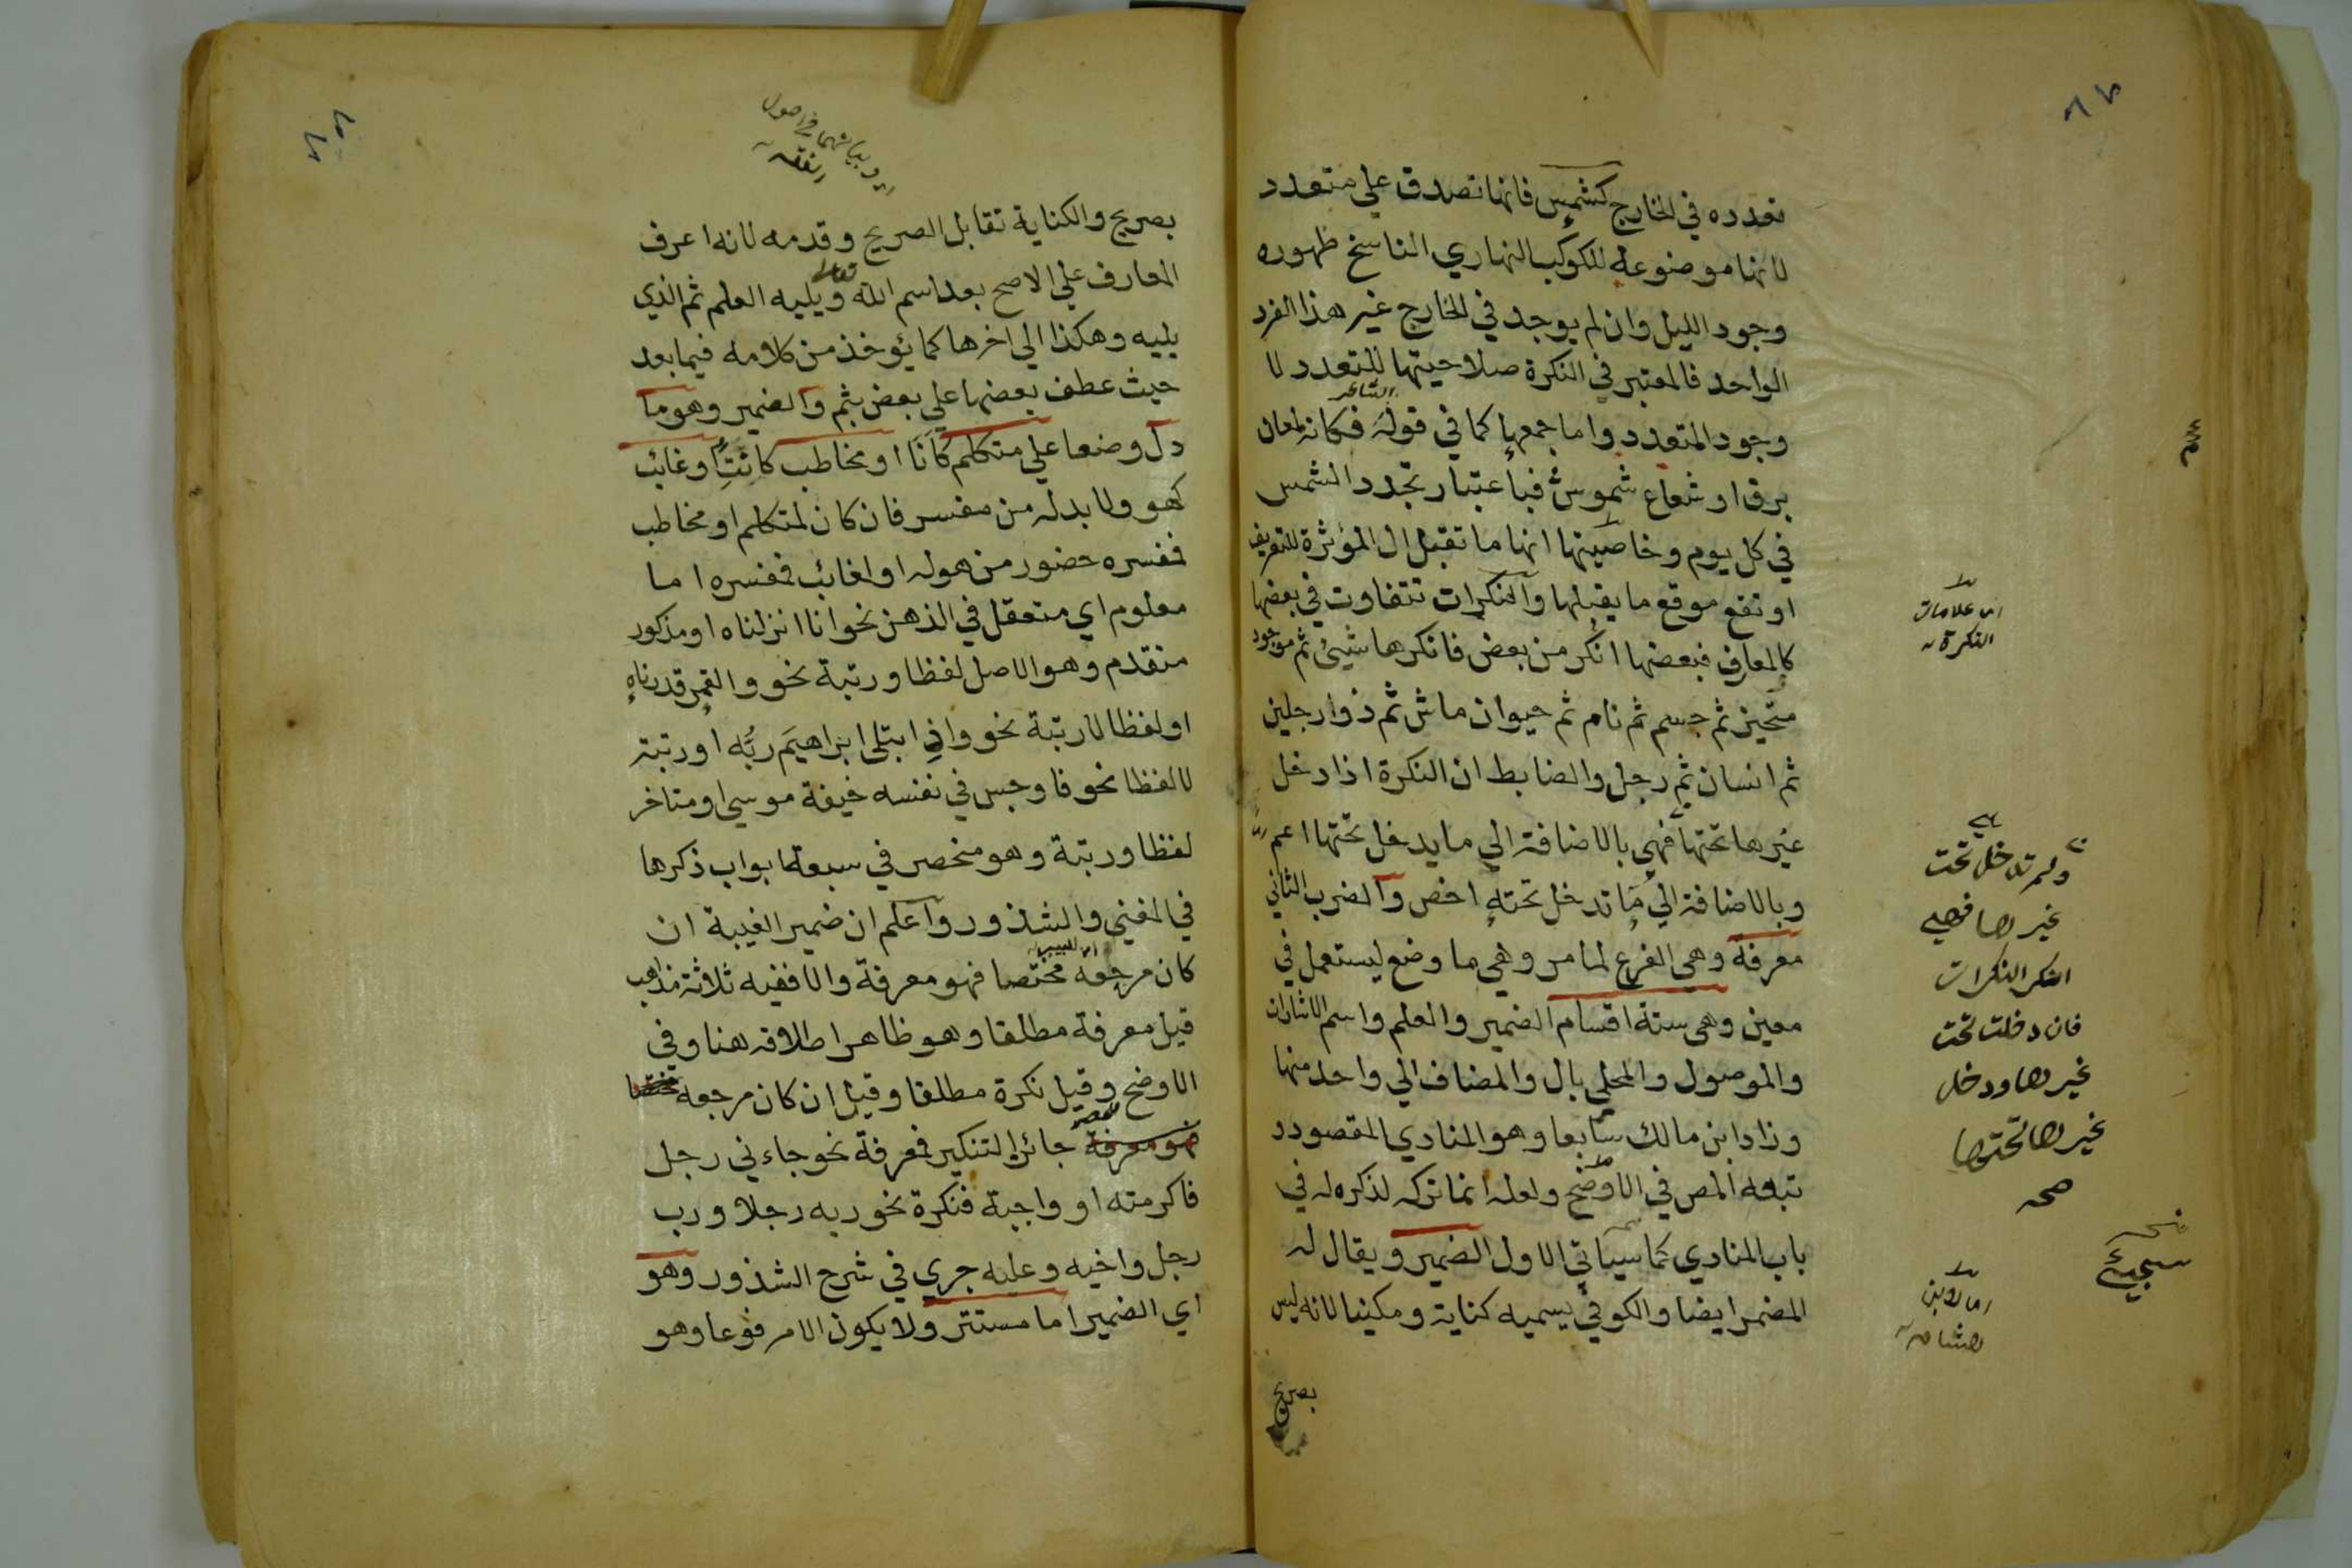 تعدده في الخارج كشمس فانها تصدق علي متعدد
لانها موضوعة للكوكب النهاري الناسخ ظهوره
وجود الليل وان لم يوجد في الخارج غير هذا الفرد
الواحد فالمعتبر في النكرة صلاحيتها للتعدد لا
الشاعر
وجود المتعدد واما جمعها كما في قوله فكانه لمعان
برق او شعاع شموس فباعتبار تجدد الشمس
في كل يوم وخاصيتها انها ما تقبل ال المؤثرة للتعريف
او تقع موقع ما يقبلها والنكرات تتفاوت في بعضها
كالمعارف فبعضها انكر من بعض فانكرها شيئ ثم موجود
متحيز ثم جسم ثم نام ثم حيوان ماش ثم ذوا رجلين
ثم انسان ثم رجل والضابط ان النكرة اذا دخل
غيرها تحتها فهي بالاضافة الي ما يدخل تحتها اعم
وبالاضافة الي ما تدخل تحته اخص والضرب الثاني
معرفة وهي الفرع لما مر وهي ما وضع ليستعمل في
معين وهي ستة اقسام الضمير والعلم واسم الاشارة
والموصول والمحلي بال والمضاف الي واحد منها
وزاد ابن مالك سابعا وهو المنادي المقصود
تبعه المص في الاوضح ولعله انما تركه لذكره له في
باب المنادي كما سياتي الاول الضمير ويقال له
المضمر ايضا والكوفي يسميه كناية ومكنيا لانه ليس
بصريح
اي علامات
النكرة
ولم تدخل تحت
غيرها فهي
انكر النكرات
فان دخلت تحت
غيرها ودخل
غيرها تحتها
صح
سيجيئ
اي لابن
هشام
بصريح والكناية تقابل الصريح وقدمه لانه اعرف
تعالى
المعارف علي الاصح بعد اسم الله ويليه العلم ثم الذي
يليه وهكذا الي اخرها كما يؤخذ من كلامه فيما بعد
حيث عطف بعضها علي بعض بثم والضمير وهو ما
دل وضعا علي متكلم كانا او مخاطب كانت او غايب
كهو ولا بد له من مفسر فان كان لمتكلم او مخاطب
فمفسره حضور من هو له او لغائب فمفسره اما
معلوم اي متعقل في الذهن نحو انا انزلناه او مذكور
متقدم وهو الاصل لفظا ورتبة نحو والقمر قدرناه
او لفظا لا رتبة نحو واذ ابتلى ابراهيم ربه او رتبة
لا لفظا نحو فاوجس في نفسه خيفة موسي او متاخر
لفظا ورتبة وهو منحصر في سبعة ابواب ذكرها
في المغني والشذور واعلم ان ضمير الغيبة ان
كان مرجعه مختصا فهو معرفة والا ففيه ثلاثة مذاهب
قيل معرفة مطلقا وهو ظاهر اطلاقه هنا وفي
الاوضح وقيل نكرة مطلقا وقيل ان كان مرجعه مختصا
فهو معرفة جائز التنكير فمعرفة نحو جاءني رجل
فاكرمته او واجبة فنكرة نحو ربه رجلا ورب
رجل واخيه وعليه جري في شرح الشذور وهو
اي الضمير اما مستتر ولا يكون الا مرفوعا وهو